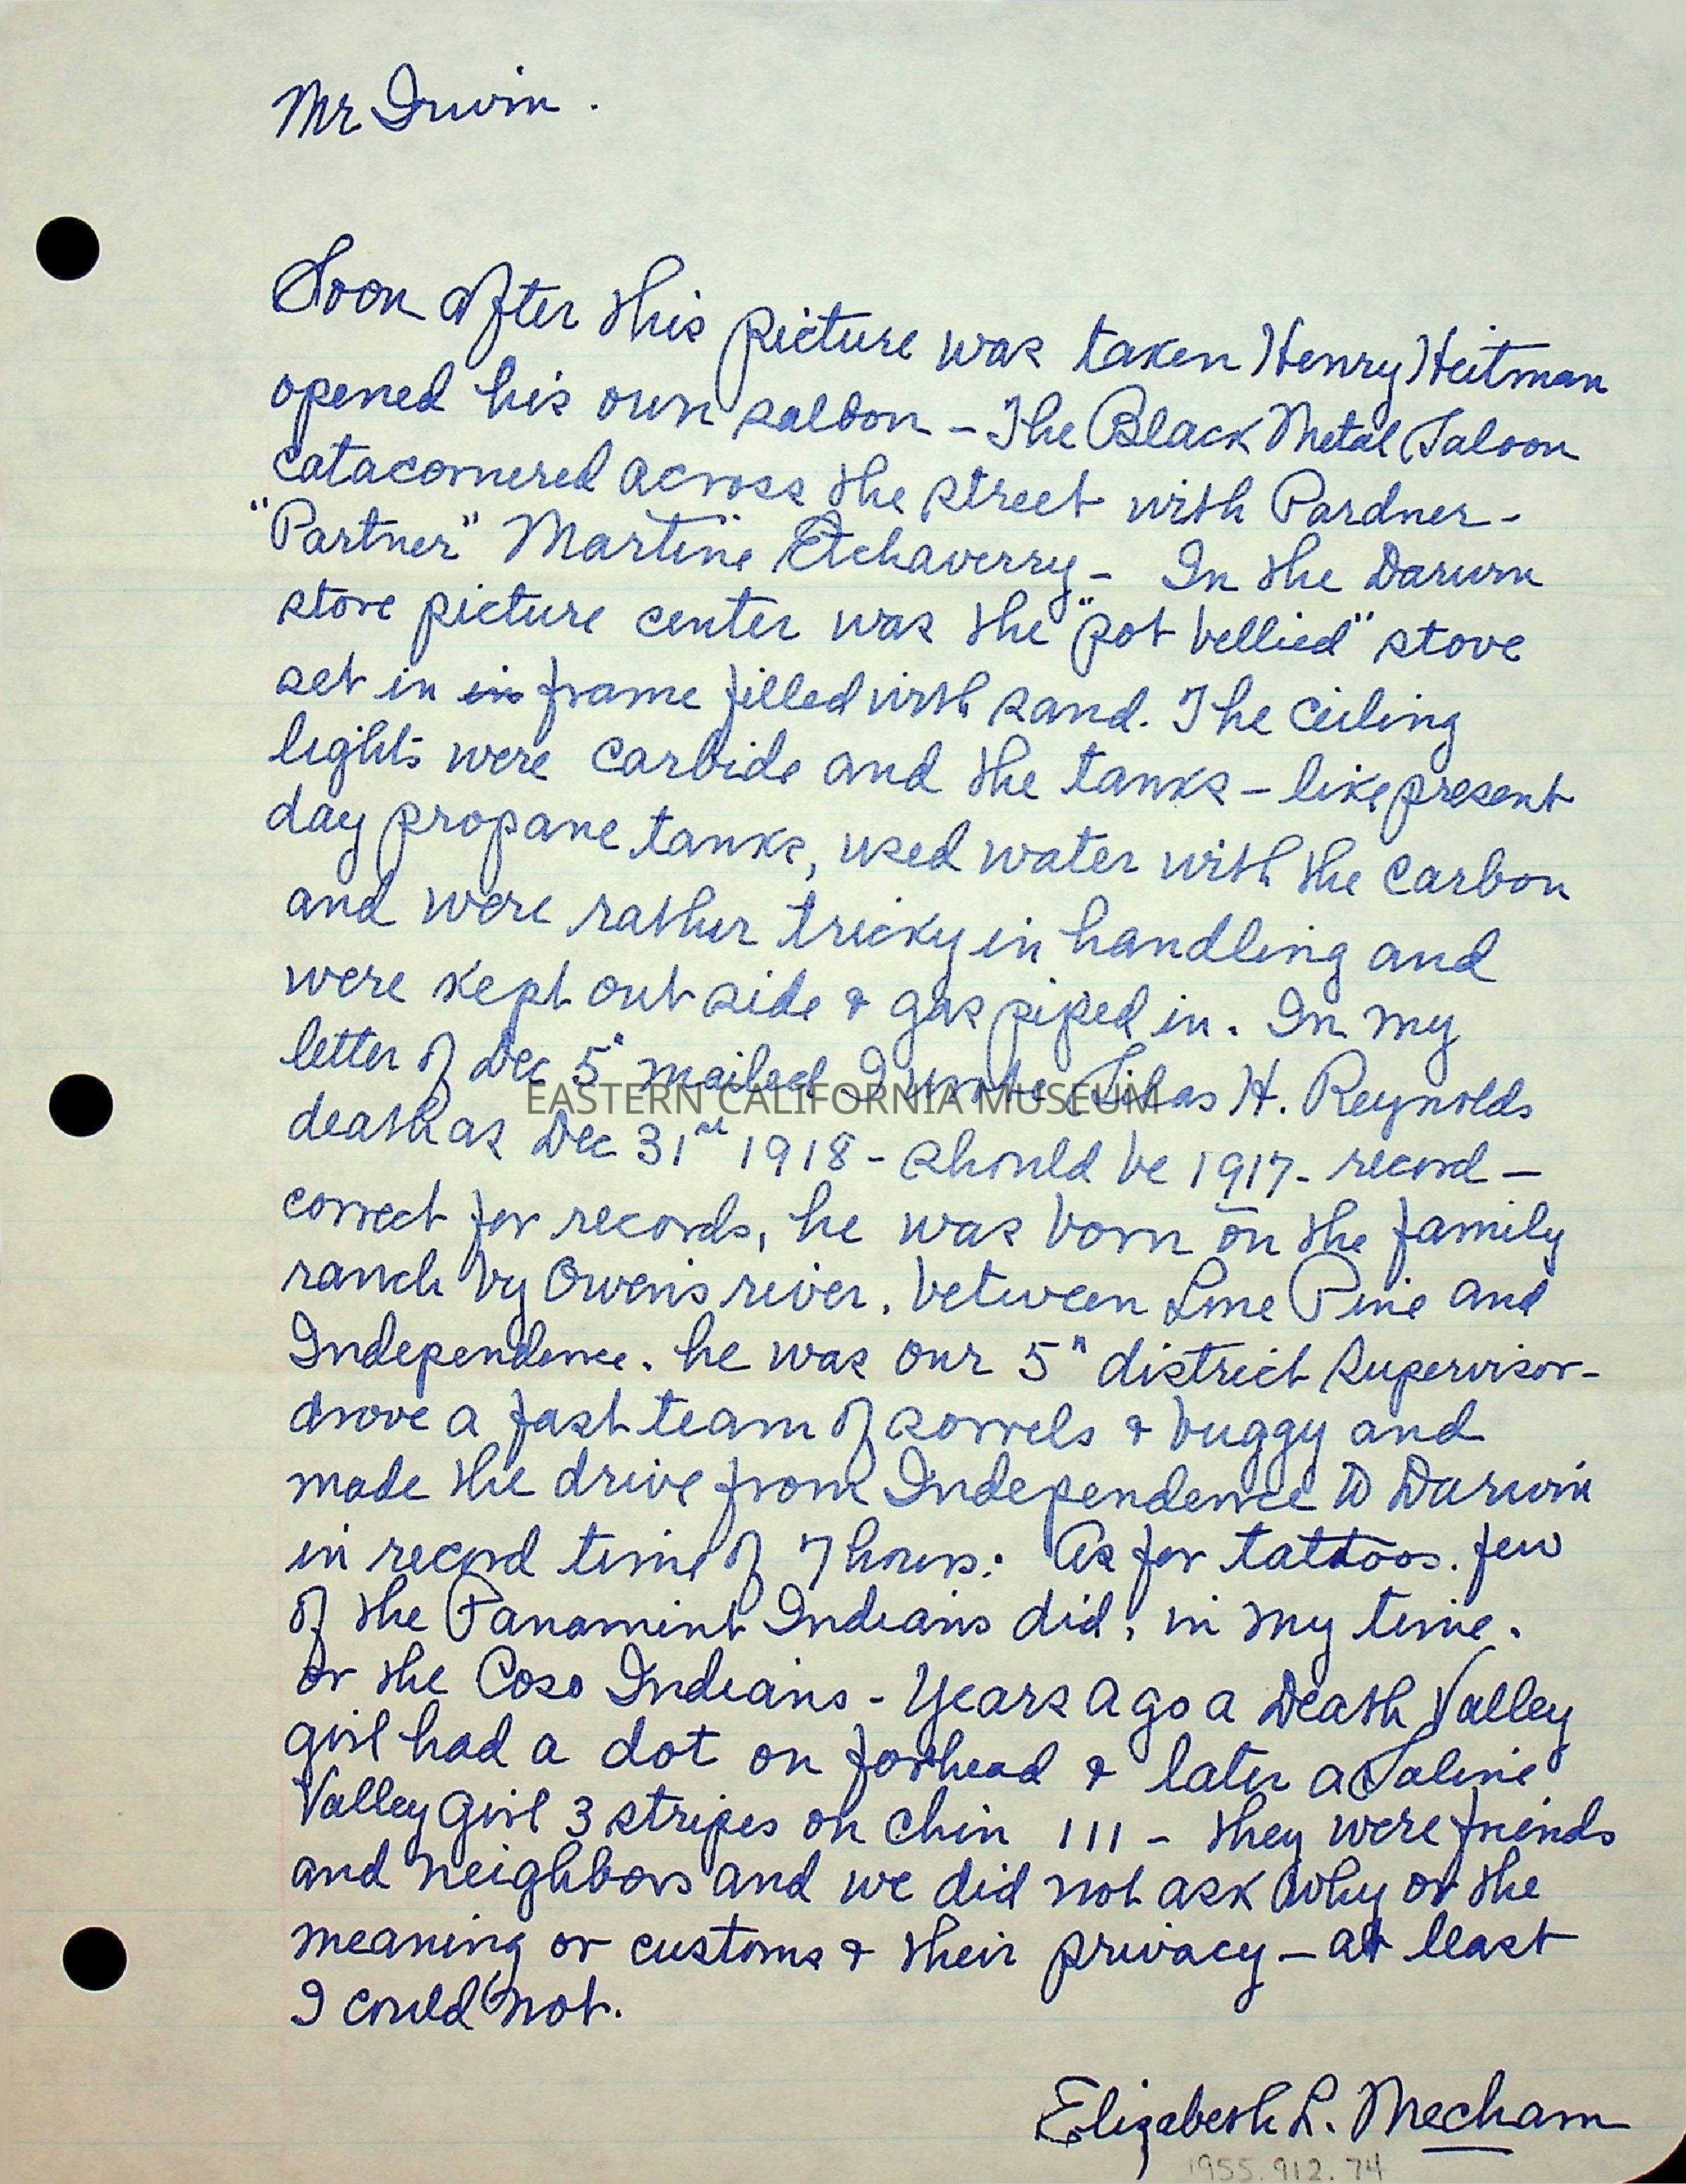 Mr Irwin.
Soon after this picture was taken Henry Heitman
opened his own saloon - The Black Metal Saloon
catacornered across the street with Pardner-
"Partner" Martine Etchaverry - In the Darwin
store picture center was the "pot bellied" stove
set in in frame filled with sand. The ceiling
lights were carbide and the tanks - like present
day propane tanks, used water with the carbon
and were rather tricky in handling and
were kept out side & gas piped in. In my
letter of Dec 5" mailed I wrote Silas H. Reynolds
death as Dec 31st 1918 - should be 1917 - record -
correct for records, he was born on the family
ranch by Owens river, between Lone Pine and
Independence. he was our 5" district Supervisor-
drove a fast team of sorrels & buggy and
made the drive from Independence to Darwin
in record time of 7 hours. As for tattoos. few
of the Panamint Indians did, in my time.
or the Coso Indians - Years ago a Death Valley
girl had a dot on forhead & later a Saline
Valley girl 3 stripes on chin 111 - they were friends
and neighbors and we did not ask why or the
meaning or customs & their privacy - at least
I could not.
Elizabeth L. Mecham
1955.912.74
EASTERN CALIFORNIA MUSEUM